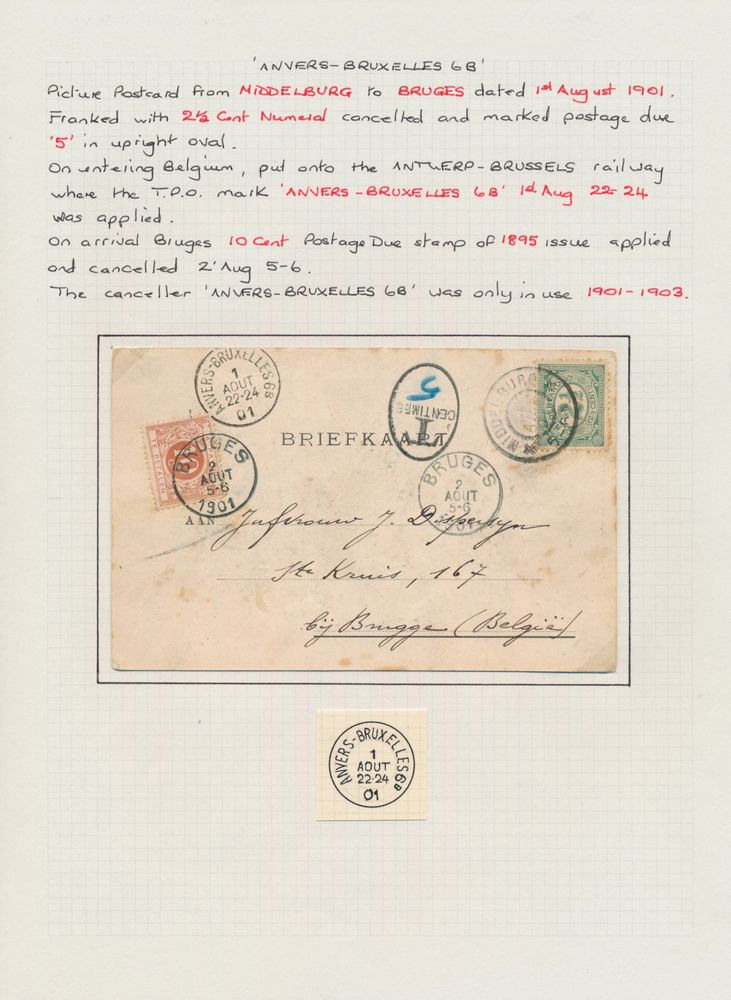 'ANVERS-BRUXELLES 6B'
Picture Postcard from MIDDELBURG to BRUGES dated 1st August 1901.
Franked with 2½ Cent Numeral cancelled and marked postage due
'5' in upright oval.
On entering Belgium, put onto the ANTWERP-BRUSSELS railway
where the T.P.O. mark 'ANVERS-BRUXELLES 6B' 1st Aug 22-24
was applied.
On arrival Bruges 10 Cent Postage Due stamp of 1895 issue applied
and cancelled 2' Aug 5-6.
The canceller 'ANVERS-BRUXELLES 6B' was only in use 1901-1903.
ANVERS-BRUXELLES 6B
1
AOUT
22-24
01
5
CENTIMES
T
MIDDELBURG
BRIEFKAART
BRUGES
2
AOUT
5-6
1901
BRUGES
2
AOUT
5-6
1901
AAN
Juffrouw J.
Ste Kruis, 167
bij Brugge (België)
ANVERS-BRUXELLES 6B
1
AOUT
22-24
01